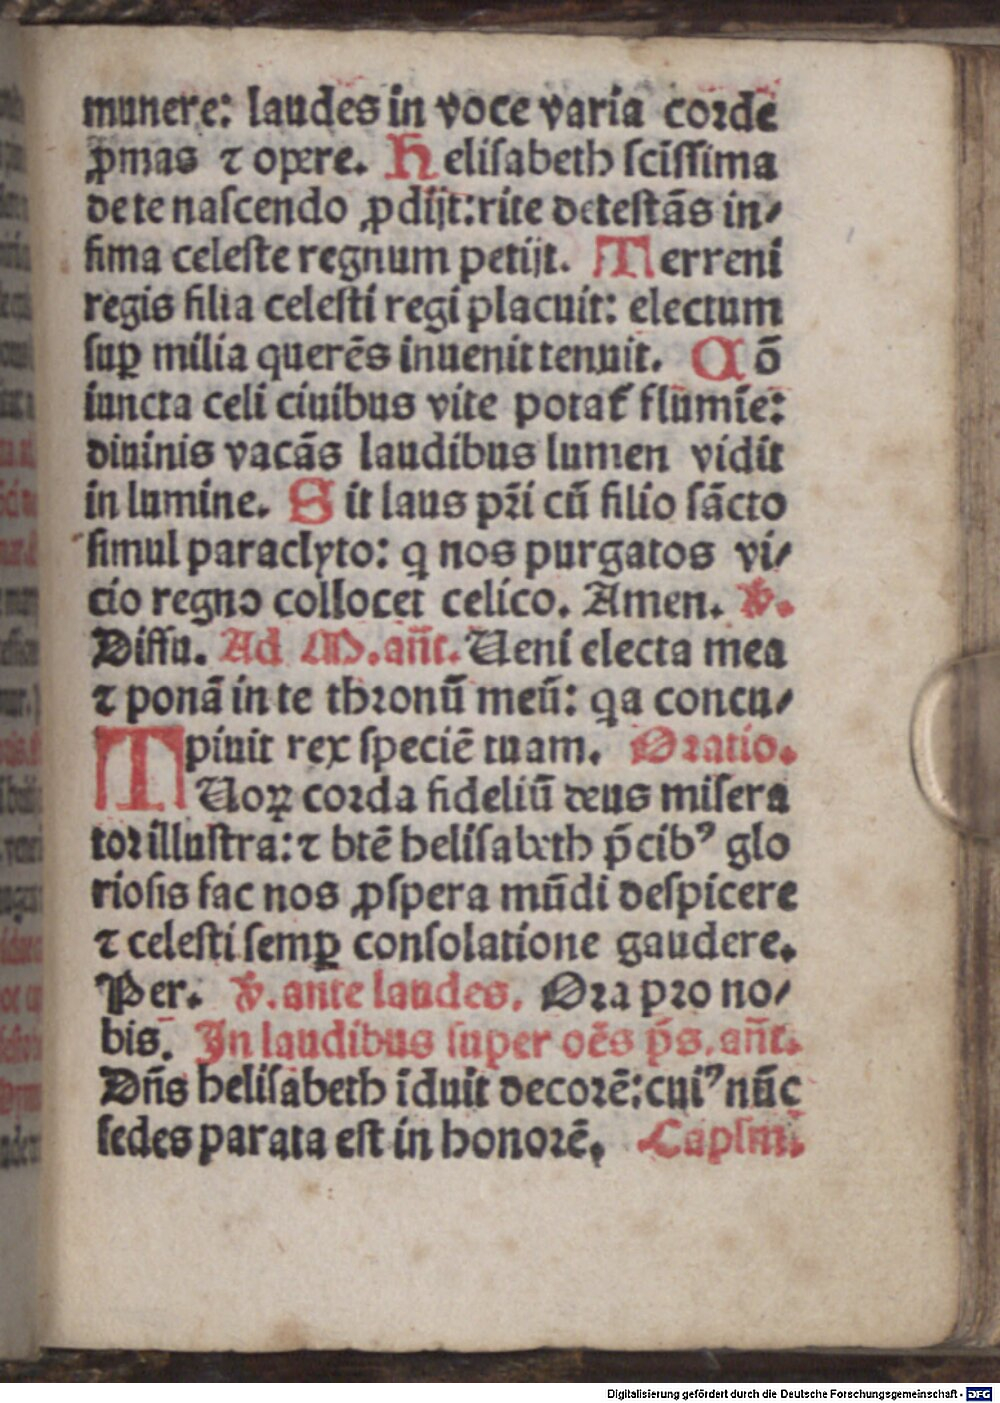 munere: laudes in voce varia corde
ꝓmas ⁊ opere. Helisabeth scissima
de te nascendo ꝓdijt: rite detestās in⸗
fima celeste regnum petijt. Terreni
regis filia celesti regi placuit: electum
suꝑ milia querēs inuenit tenuit. Qō
iuncta celi ciuibus vite potat flumīe:
diuinis vacās laudibus lumen vidit
in lumine. Sit laus pr̄i cū filio sācto
simul paraclyto: q nos purgatos vi⸗
cio regno collocet celico. Amen. ℣.
Diffu. Ad M. an̄t. Veni electa mea
⁊ ponā in te thronū meū: qa concu⸗
piuit rex speciē tuam. Oratio.
TUoꝝ corda fideliū deus misera
tor illustra: ⁊ btē helisabeth p̄cibꝰ glo
riosis fac nos ꝓspera mūdi despicere
⁊ celesti semꝑ consolatione gaudere.
Per. ℣. ante laudes. Ora pro no⸗
bis. In laudibus super oēs p̄s. an̄t.
Dn̄s helisabeth īduit decorē: cuiꝰ nūc
sedes parata est in honorē. Capſm.
Digitalisierung gefördert durch die Deutsche Forschungsgemeinschaft - DFG